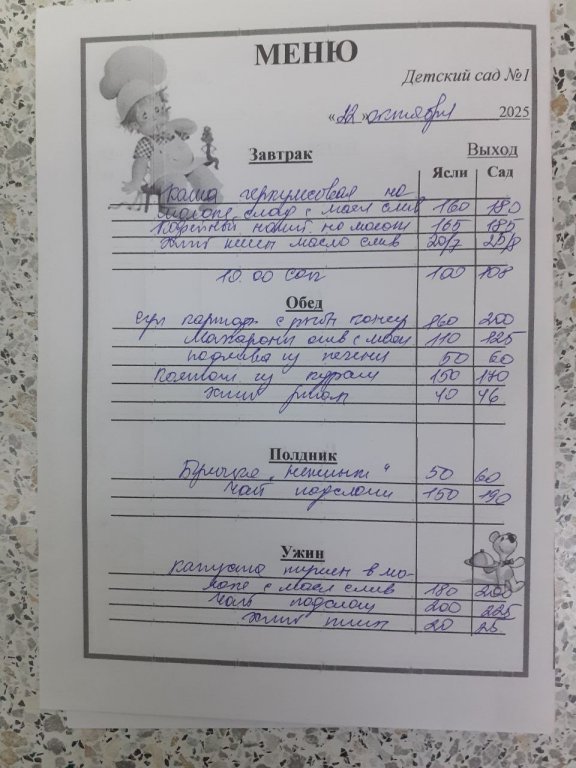 МЕНЮ
Детский сад №1
«22» октября 2025
Завтрак Выход
Ясли Сад
Каша геркулесовая на
молоке слад с масл слив 160 180
Кофейный напит на молоке 165 185
хлеб пшен масло слив 20/7 25/8
10.00 сок 100 108
Обед
суп картоф с рыбн консер 160 200
Макароны отв с масл 110 125
подлива из печени 50 60
Компот из кураги 150 170
хлеб ржан 40 46
Полдник
Булочка " " 50 60
Чай подслащ 150 190
Ужин
Капуста тушен в мо-
локе с масл слив 180 200
Чай подслащ 200 225
хлеб пшен 20 25